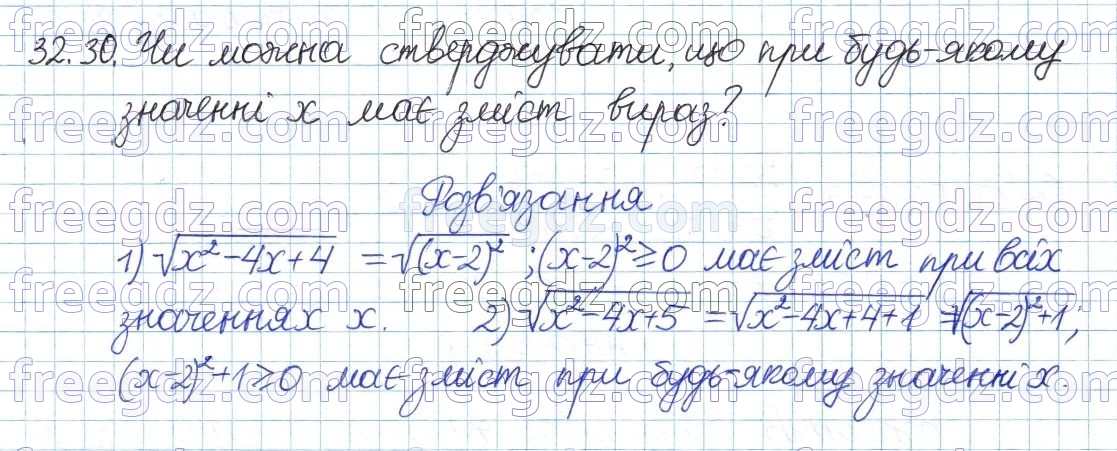 32.30. Чи можна стверджувати, що при будь-якому
значенні x має зміст вираз?
Розв'язання
1) √(x²-4x+4) = √((x-2)²) ; (x-2)² ≥ 0 має зміст при всіх
значеннях x. 2) √(x²-4x+5) = √(x²-4x+4+1) = √((x-2)²+1);
(x-2)²+1 ≥ 0 має зміст при будь-якому значенні x.